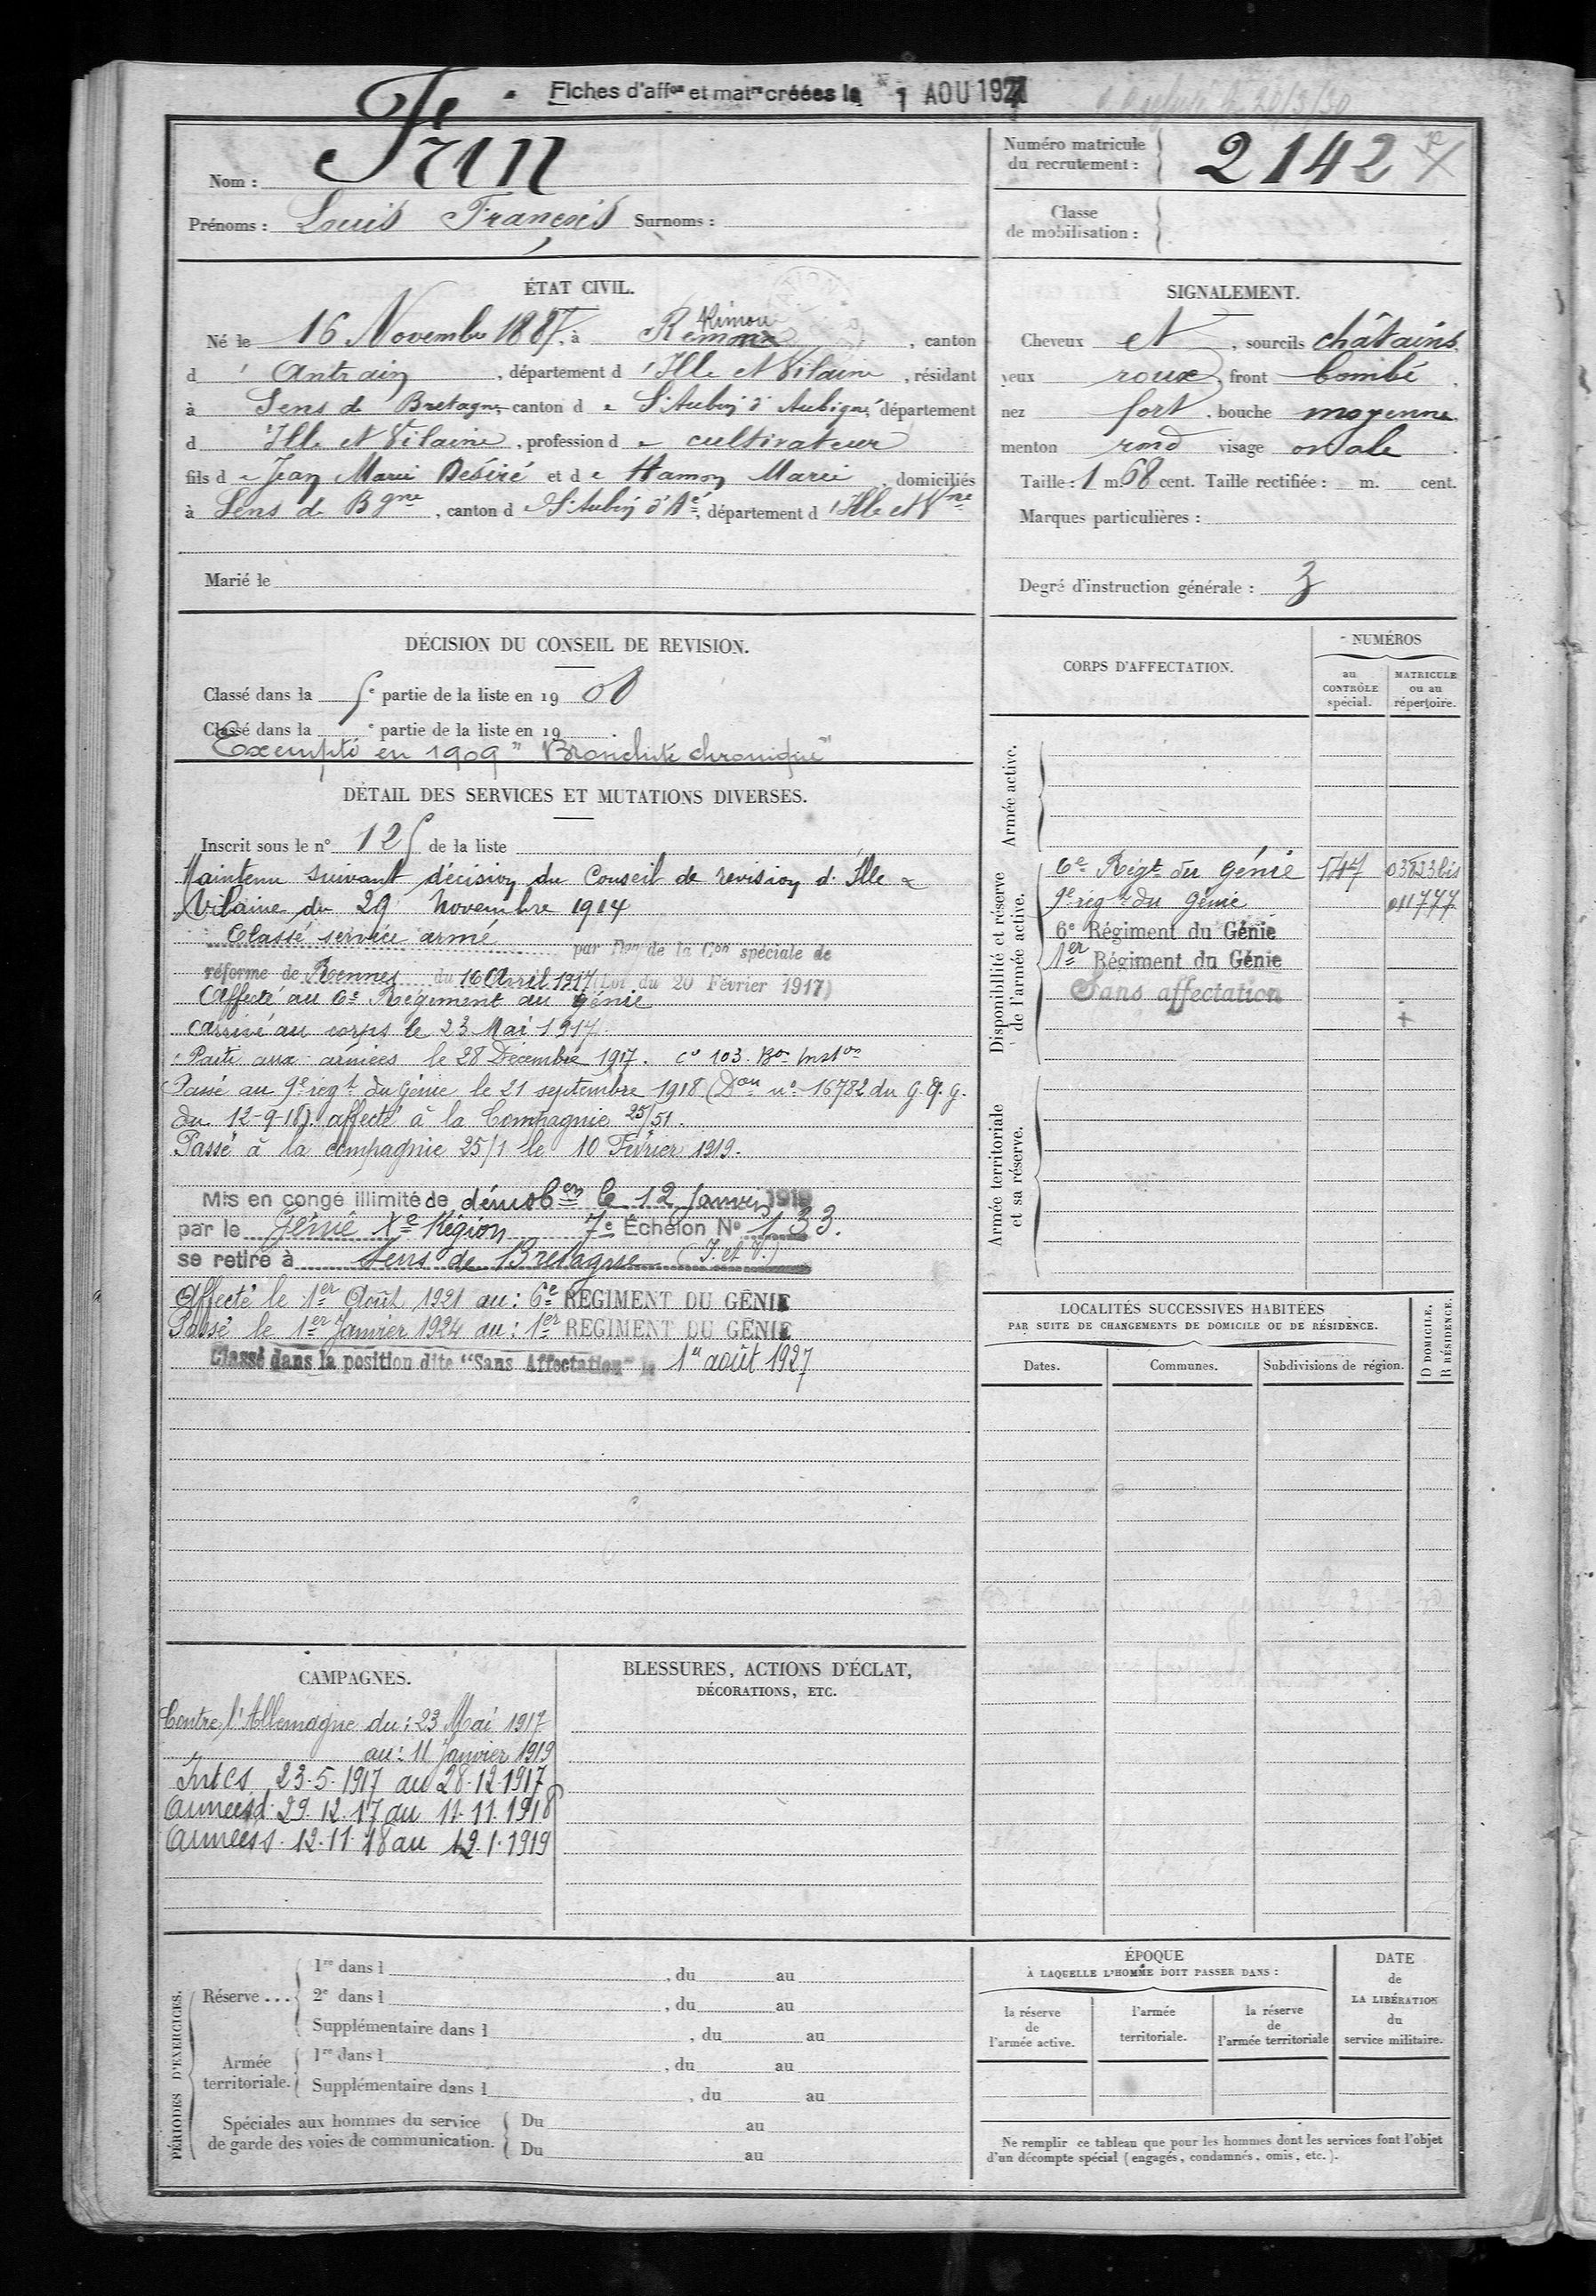 Fiches d'affon et matre créées le 1 AOU 1927
Nom : Frin
Prénoms : Louis François Surnoms :
Numéro matricule du recrutement : 2142
Classe de mobilisation :
ÉTAT CIVIL.
Rimou
Né le 16 Novembre 1887, à Rémoux, canton
d' Antrain, département d'Ille et Vilaine, résidant
à Sens de Bretagne, canton de St Aubin d'Aubigné, département
d'Ille et Vilaine, profession de cultivateur
fils de Jean Marie Désiré et de Hamon Marie, domiciliés
à Sens de Bgne, canton de St Aubin d'Aé, département d'Ille et Vne
Marié le
SIGNALEMENT.
Cheveux et, sourcils châtains,
yeux roux, front bombé,
nez fort, bouche moyenne
menton rond visage ovale.
Taille : 1 m. 68 cent. Taille rectifiée : m. cent.
Marques particulières :
Degré d'instruction générale : 3
DÉCISION DU CONSEIL DE REVISION.
Classé dans la 5e partie de la liste en 1908
Classé dans la e partie de la liste en 19 .
Exempté en 1909 "Bronchite chronique"
DÉTAIL DES SERVICES ET MUTATIONS DIVERSES.
Inscrit sous le n° 125 de la liste
Maintenu suivant décision du Conseil de revision d'Ille &
Vilaine du 29 Novembre 1914
Classé service armé par Don de la Con spéciale de
réforme de Rennes du 16 Avril 1917 (Loi du 20 Février 1917)
Affecté au 6e Régiment du génie
arrivé au corps le 23 Mai 1917.
Parti aux armées le 28 Décembre 1917. Cie 103. Bon Inston
Passé au 9e régt du Génie le 21 septembre 1918 (Don n° 16782 du G.Q.G.
du 12-9-18). affecté à la Compagnie 25/51.
Passé à la compagnie 25/1 le 10 Février 1919.
Mis en congé illimité de démobon le 12 Janvier 1919
par le Génie Xe Région 7e Échelon N° 133.
se retire à Sens de Bretagne (I. et V.)
Affecté le 1er Août 1921 au : 6e RÉGIMENT DU GÉNIE
Passé le 1er Janvier 1924 au : 1er RÉGIMENT DU GÉNIE
Classé dans la position dite "Sans Affectation" le 1er août 1927
CORPS D'AFFECTATION.
NUMÉROS
au CONTRÔLE spécial.
MATRICULE ou au répertoire.
Armée active.
Disponibilité et réserve de l'armée active.
6e Régt du Génie 1547 03823 bis
9e régt du Génie 011777
6e Régiment du Génie
1er Régiment du Génie
Sans affectation
Armée territoriale et sa réserve.
LOCALITÉS SUCCESSIVES HABITÉES
PAR SUITE DE CHANGEMENTS DE DOMICILE OU DE RÉSIDENCE.
Dates. Communes. Subdivisions de région.
D DOMICILE.
R RÉSIDENCE.
CAMPAGNES.
Contre l'Allemagne du : 23 Mai 1917
au : 11 Janvier 1919
Int CS 23.5.1917 au 28.12.1917
Armées d. 29.12.17 au 11.11.1918
Armées s. 12.11.18 au 12.1.1919
BLESSURES, ACTIONS D'ÉCLAT,
DÉCORATIONS, ETC.
PÉRIODES D'EXERCICES.
Réserve ...
1re dans l , du au
2e dans l , du au
Supplémentaire dans l , du au
Armée territoriale.
1re dans l , du au
Supplémentaire dans l , du au
Spéciales aux hommes du service
de garde des voies de communication.
Du au
Du au
ÉPOQUE
À LAQUELLE L'HOMME DOIT PASSER DANS :
la réserve de l'armée active.
l'armée territoriale.
la réserve de l'armée territoriale
DATE de LA LIBÉRATION du service militaire.
Ne remplir ce tableau que pour les hommes dont les services font l'objet
d'un décompte spécial (engagés, condamnés, omis, etc.).